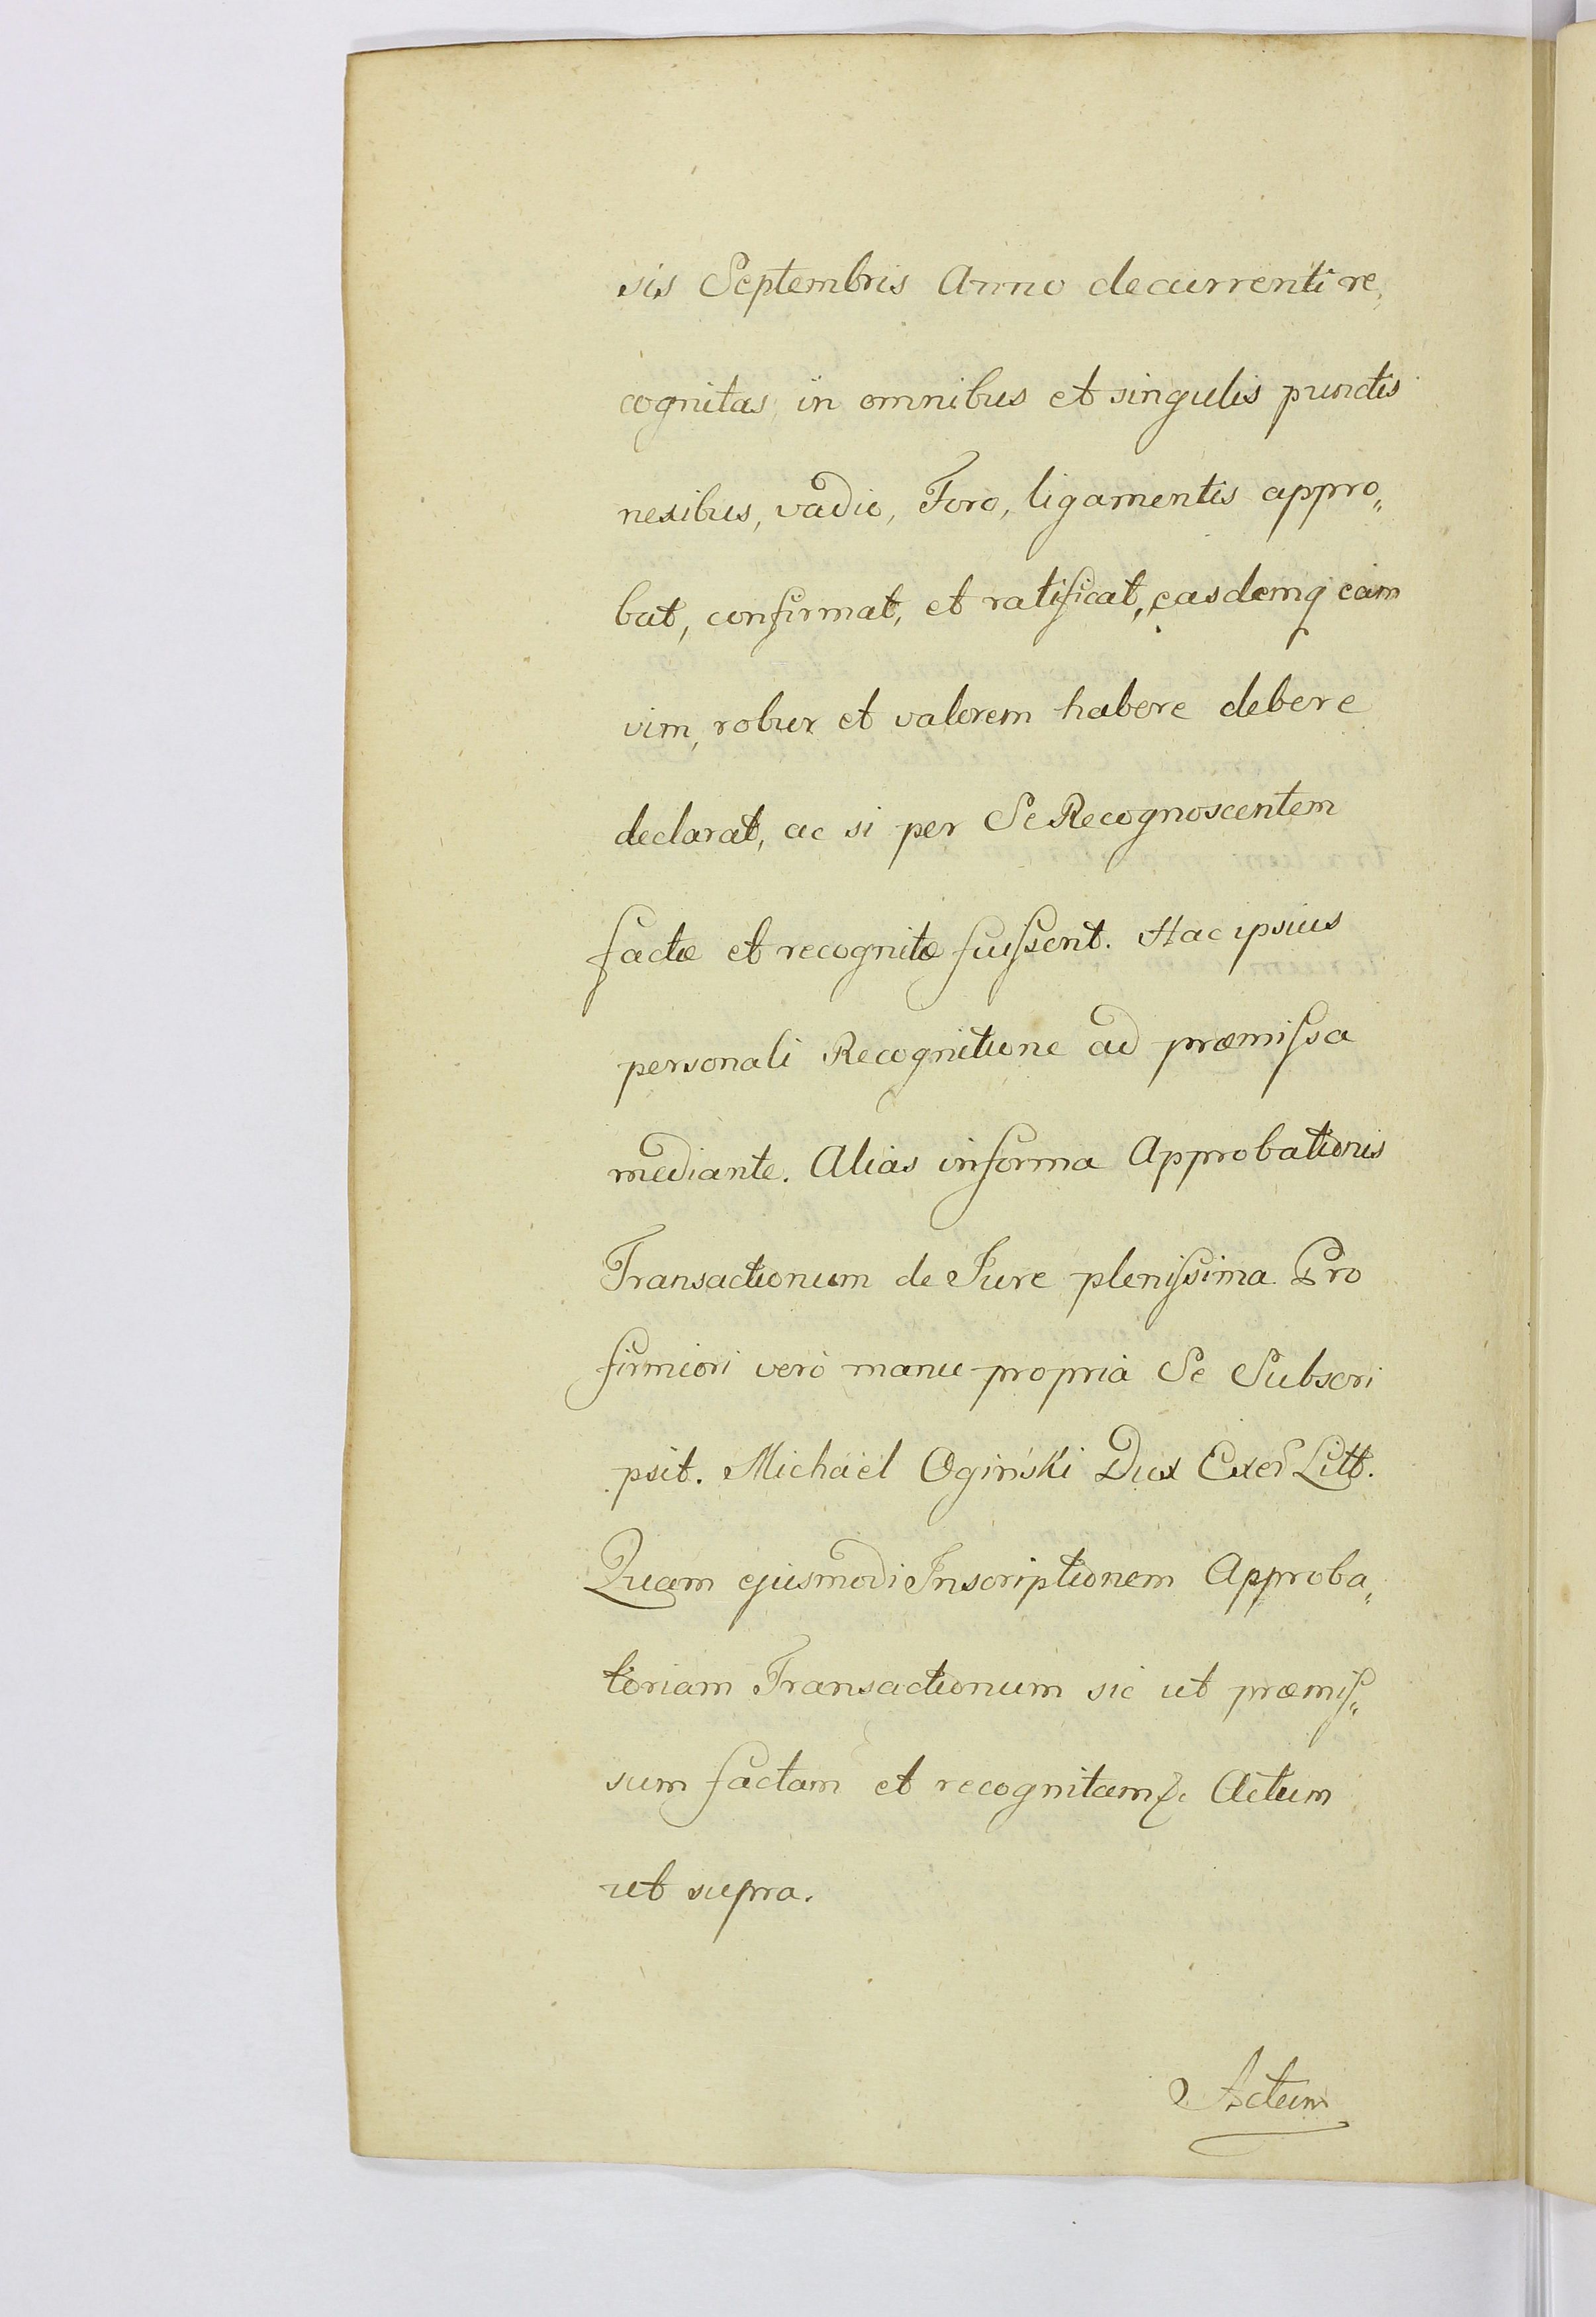 sis Septembris Anno decurrenti re„
cognitas, in omnibus et singulis punctis
nexibus, vadio, Foro, ligamentis appro„
bat, confirmat, et ratificat, easdemq eam
vim, robur et valorem habere debere
declarat, ac si per Se Recognoscentem
factæ et recognitæ fuiſsent. Hac ipsius
personali Recognitione ad præmiſsa
mediante. Alias in forma Approbationis
Transactionum de Jure pleniſsima. Pro
firmiori verò manu propriâ Se Subscri
psit. Michaël Ogiński Dux Exer Litt.
Quam ejusmodi Inscriptionem Approba„
toriam Transactionum sic ut præmiſ„
sum factam et recognitam &. Actum
ut supra.
Actum